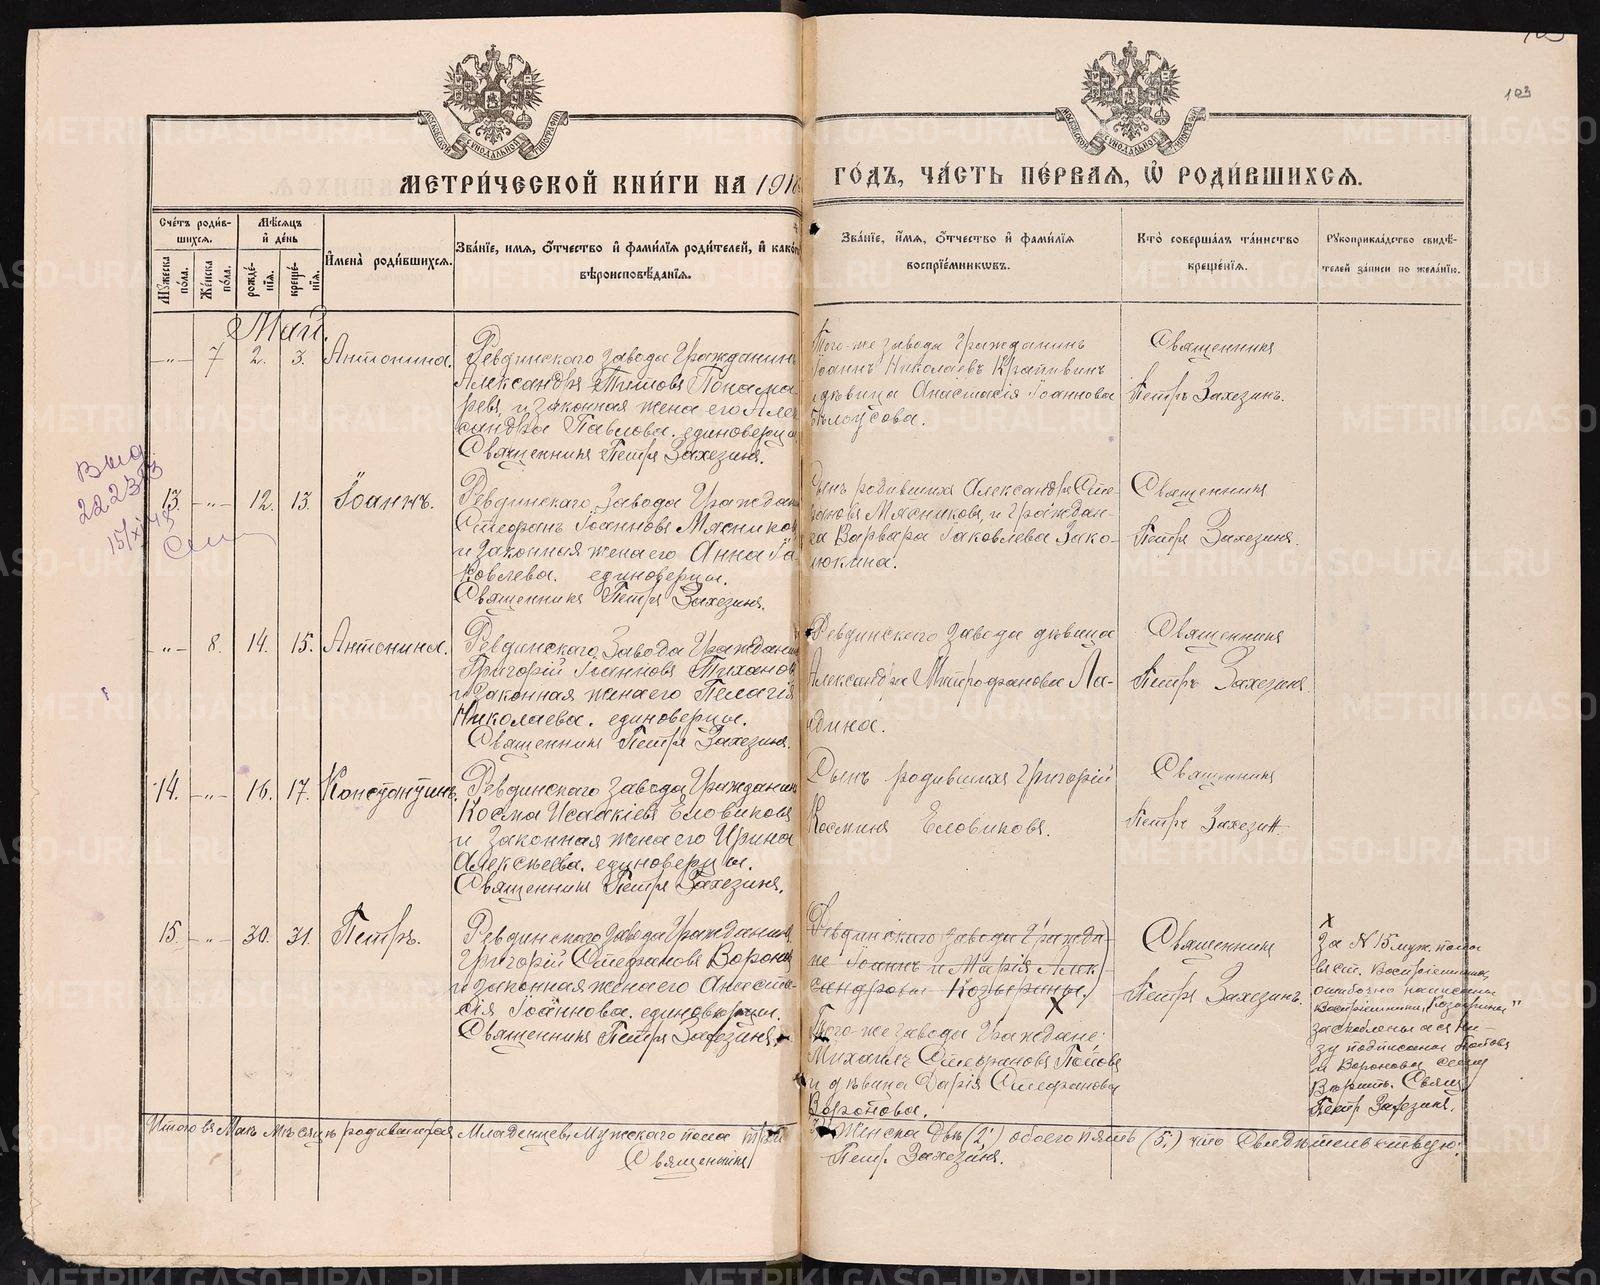 103
МЕТРИ́ЧЕСКОЙ КНИ́ГИ НА 1918
ГО́ДЪ, ЧА́СТЬ ПЕ́РВАЯ, Ѡ҆ РОДИ́ВШИХСЯ.
Сче́тъ роди́в-
шихся.
Мѣ́сяцъ
и҆ де́нь
И҆мена̀ роди́вшихся.
Зва́нїе, имя, о҆́тчество и҆ фами́лїя роди́телей, и҆ како́го
вѣроисповѣ́данїя.
Зва́нїе, и҆́мя, о҆́тчество и҆ фами́лїя
воспрїе́мникѡвъ.
Кто̀ соверша́лъ та́инство
креще́нїя.
Рꙋкоприкла́дство свидѣ́-
телей за́писи по жела́нїю.
Мꙋ́жеска
по́ла.
Же́нска
по́ла.
рожде́-
нїя.
креще́-
нїя.
Май.
-„- 7 2. 3. Антонина.
Ревдинскаго Завода Гражданинъ
Александръ Титовъ Понама-
ревъ, и законная жена его Алек
сандра Павлова. единоверцы
Священникъ Петръ Захезинъ.
Того-же завода Гражданинъ
Іоаннъ Николаевъ Крапивинъ
и дѣвица Анастасія Іоаннова
Бѣлоусова.
Священникъ
Петръ Захезинъ.
Выд
222383
15/XI 43
13. -„- 12. 13. Іоаннъ.
Ревдинскаго Завода Граждани
Стефанъ Іоанновъ Мясников
и Законная жена его Анна Іа
ковлева. единоверцы.
Священникъ Петръ Захезинъ.
Сынъ родившихъ Александръ Сте-
фановъ Мясниковъ, и Граждан-
ка Варвара Іаковлева Зако-
люкина.
Священникъ
Петръ Захезинъ.
-„- 8. 14. 15. Антонина.
Ревдинскаго Завода Граждани
Григорій Іоанновъ Тихонов
и Законная жена его Пелагія
Николаева. единоверцы.
Священникъ Петръ Захезинъ.
Ревдинскаго Завода дѣвица
Александра Митрофанова Ла-
дина.
Священникъ
Петръ Захезинъ
14. -„- 16. 17. Константинъ.
Ревдинскаго Завода Гражданинъ
Косма Исаакіевъ Еловиковъ
и Законная жена его Ирина
Алексѣева. единоверцы.
Священникъ Петръ Захезинъ.
Сынъ родившихъ Григорій
Косминъ Еловиковъ.
Священникъ
Петръ Захезин
15 -„- 30. 31. Петръ.
Ревдинскаго Завода Гражданинъ
Григорій Стефановъ Воронов
и законная жена его Анаста-
сія Іоаннова. единоверцы.
Священникъ Петръ Захезинъ.
Ревдинскаго завода Гражда-
не Іоаннъ и Марія Алек-
сандровы Козырины.)
Х
Того-же завода Граждане:
Михаилъ Стефановъ Поповъ
и дѣвица Дарія Стефанова
Воронова.
Священникъ
Петръ Захезинъ.
х
За N 15 муж. пола
въ ст. Воспріемники,
ошибочно написаны
Воспріемники „Козырины"
заскоблены а съ Ни-
зу подписаны Поповъ
и Воронова сему
Вѣрить. Свящ
Петр Захезинъ.
Итого въ Маѣ мѣсяцѣ родившихся Младенцевъ Мужского пола три
Женска двѣ (2.) обоего пять (5.) что Свидѣтельствую:
Священникъ
Петр Захезинъ.
METRIKI.GASO-URAL.RU